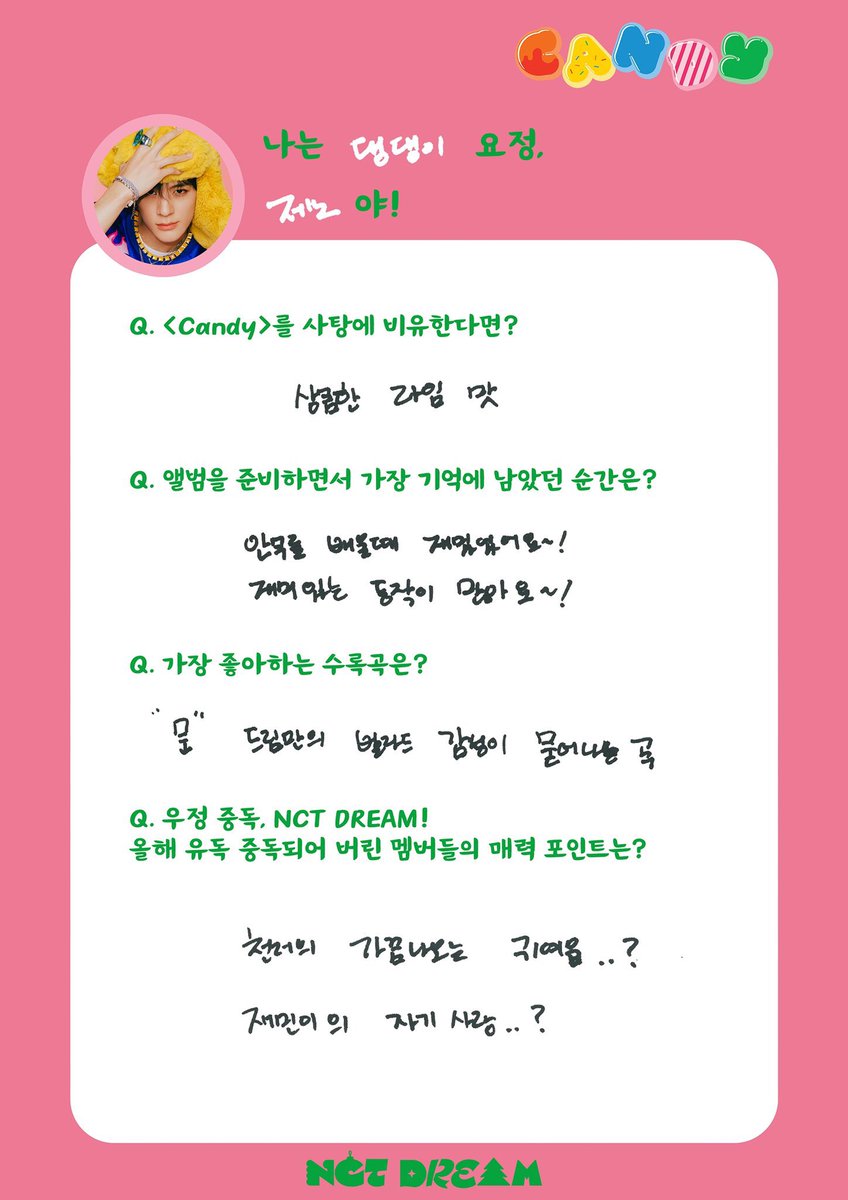 CANDY
나는 댕댕이 요정,
제노 야!
Q. <Candy>를 사탕에 비유한다면?
상큼한 라임 맛
Q. 앨범을 준비하면서 가장 기억에 남았던 순간은?
안무를 배울때 재밌었어요~!
재미있는 동작이 많아요~!
Q. 가장 좋아하는 수록곡은?
"몫" 드림만의 발라드 감성이 묻어나는 곡
Q. 우정 중독, NCT DREAM!
올해 유독 중독되어 버린 멤버들의 매력 포인트는?
천러의 가끔나오는 귀여움..?
재민이의 자기 사랑..?
NCT DREAM